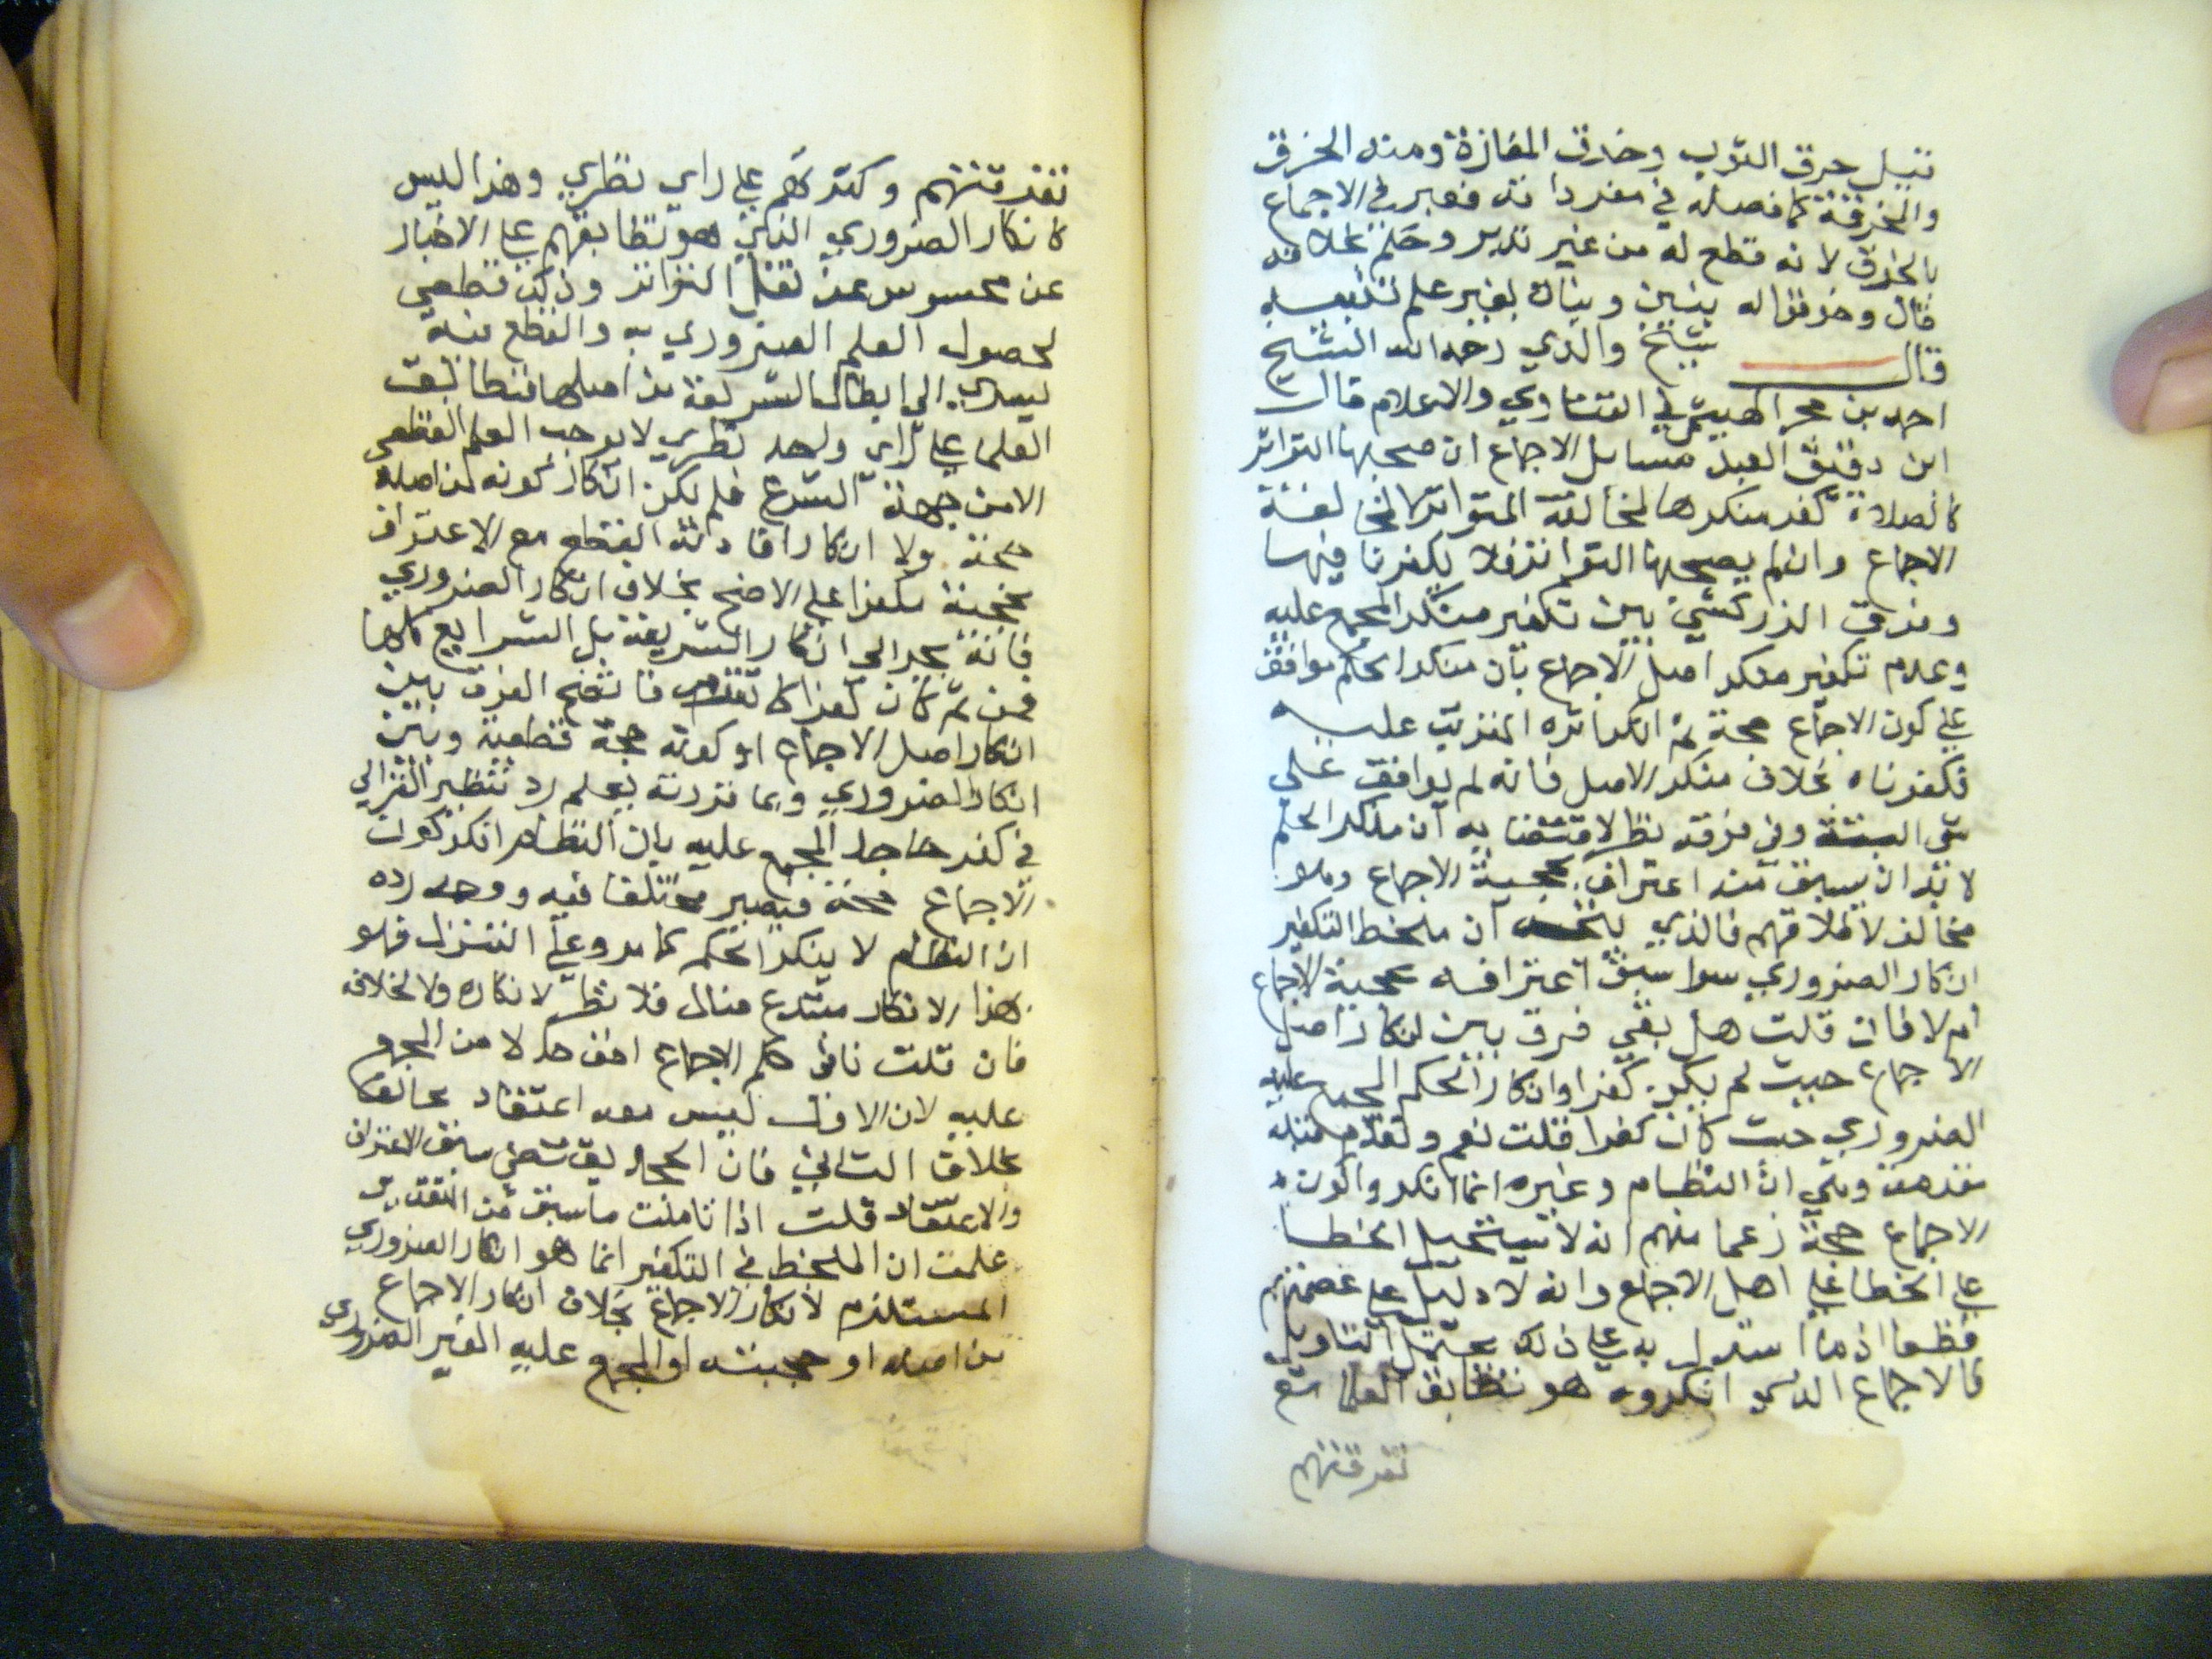 قيل خرق الثوب وخرق المفازة ومنه الخرق
والمخرقة كما فصله في مفرداته فعبر في الاجماع
بالخرق لانه قطع له من غير تدبر وحكم بخلافه
قال وخرقوا له بنين وبنات بغير علم
قال شيخ والدي رحمه الله الشيخ
احمد بن حجر الهيتمي في الفتاوي والاعلام قال
ابن دقيق العيد مسايل الاجماع ان صحبها التواتر
كالصلاة كفر منكرها لمخالفة المتواتر لا لمخالفة
الاجماع وان لم يصحبها التواتر فلا يكفر نافيها
وفرق الزركشي بين تكفير منكر المجمع عليه
وعدم تكفير منكر اصل الاجماع بان منكر الحكم موافق
على كون الاجماع حجة ثم انكر اثره المترتب عليه
فكفرناه بخلاف منكر الاصل فانه لم يوافق على
شي البتة وفي فرقه نظر لاقتضايه ان منكر الحكم
لا بد ان يسبق منه اعتراف بحجية الاجماع وهو
مخالف لاطلاقهم فالذي يتجه ان ملحظ التكفير
انكار الضروري سوا سبق اعترافه بحجية الاجماع
ام لا فان قلت هل بقي فرق بين انكار اصل
الاجماع حيث لم يكن كفرا وانكار الحكم المجمع عليه
الضروري حيث كان كفرا قلت نعم وتقدم قبله
مقدمة وهي ان النظام وغيره انما انكروا كون
الاجماع حجة زعما منهم انه لا يستحيل الخطا
على الخطا على اهل الاجماع وانه لا دليل على عصمتهم
قطعا اذ ما استدل به على ذلك يحتمل التاويل
فالاجماع الذي انكروه هو تطابق العلما مع
تفرقتهم
تفرقتهم وكثرتهم على راي نظري وهذا ليس
كانكار الضروري الذي هو تطابقهم على الاخبار
عن محسوس عند نقل التواتر وذلك قطعي
لحصول العلم الضروري به والقطع منه
ليسري الى ابطال الشريعة من اصلها فتطابق
العلما على راي واحد نظري لا يوجب العلم القطعي
الا من جهة الشرع فلم يكن انكار كونه من اصله
حجة ولا انكار افادته القطع مع الاعتراف
بحجيته كفرا على الاصح بخلاف انكار الضروري
فانه يجر الى انكار الشريعة بل الشرايع كلها
فمن ثم كان كفرا كما تقدم فاتضح الفرق بين
انكار اصل الاجماع او كونه حجة قطعية وبين
انكار الضروري وبما قررته يعلم رد تنظير الغزالي
في كفر جاحد المجمع عليه بان النظام انكر كون
الاجماع حجة فيصير مختلفا فيه ووجه رده
ان النظام لا ينكر الحكم كما مر وعلى التنزل فهو
بهذا الانكار مبتدع ضال فلا نظر لانكاره ولا لخلافه
فان قلت نافي حكم الاجماع اخف حالا من المجمع
عليه لان الاول ليس معه اعتقاد مخالف
بخلاف الثاني فان الجحد يقتضي سبق الاعتراف
والاعتقاد قلت اذا تاملت ما سبق من التقدير
علمت ان الملحظ في التكفير انما هو انكار الضروري
المستلزم لانكار الاجماع بخلاف انكار الاجماع
من اصله او حجيته او المجمع عليه الغير الضروري